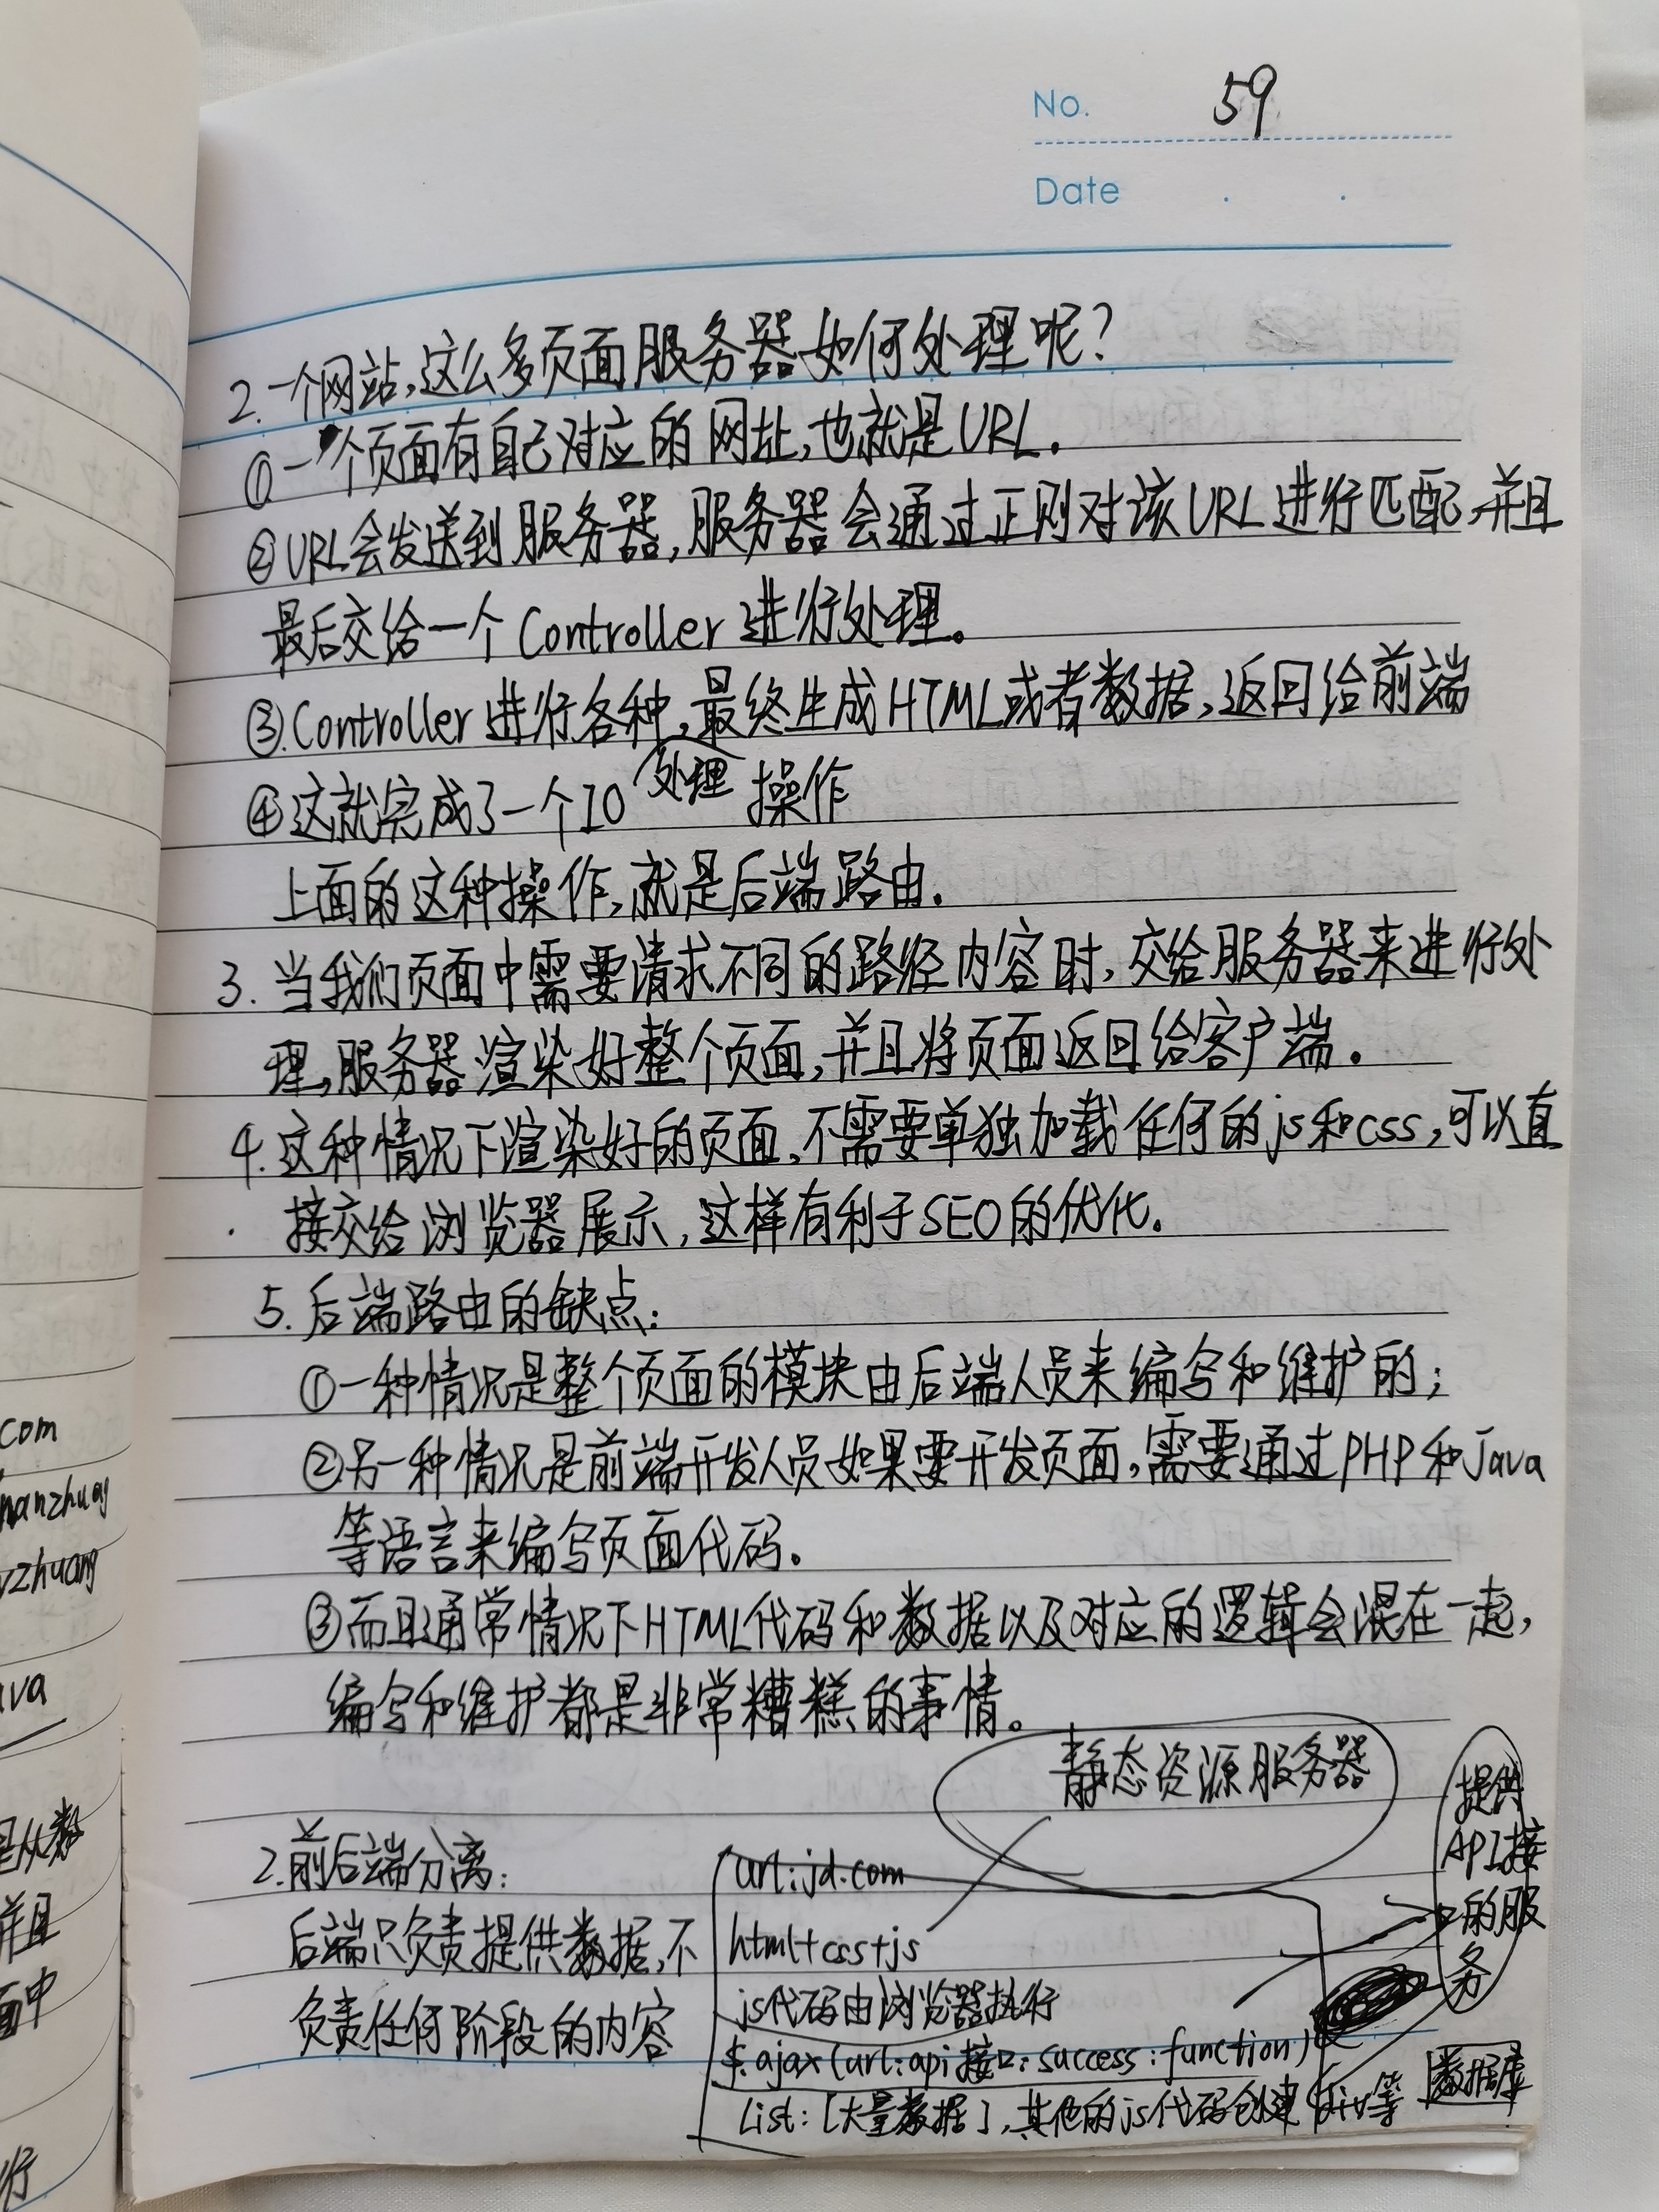 No. 59
Date
2.一个网站,这么多页面服务器如何处理呢?
①一个页面有自己对应的网址,也就是URL.
②URL会发送到服务器,服务器会通过正则对该URL进行匹配,并且
最后交给一个Controller进行处理。
③.Controller进行各种处理,最终生成HTML或者数据,返回给前端
④这就完成了一个IO操作
上面的这种操作,就是后端路由.
3.当我们页面中需要请求不同的路径内容时,交给服务器来进行处
理,服务器渲染好整个页面,并且将页面返回给客户端.
4.这种情况下渲染好的页面,不需要单独加载任何的js和css,可以直
接交给浏览器展示,这样有利于SEO的优化.
5.后端路由的缺点:
①一种情况是整个页面的模块由后端人员来编写和维护的;
②另一种情况是前端开发人员如果要开发页面,需要通过PHP和Java
等语言来编写页面代码.
③而且通常情况下HTML代码和数据以及对应的逻辑会混在一起,
编写和维护都是非常糟糕的事情。
静态资源服务器
提供
API接
口的服
务
2.前后端分离:
后端只负责提供数据,不
负责任何阶段的内容
url:jd.com
html+css+js
js代码由浏览器执行
$.ajax(url:api接口;success:function)
List:[大量数据],其他的js代码创建div等
数据库
com
nanzhuang
zhuang
ava
是从数
并且
面中
行